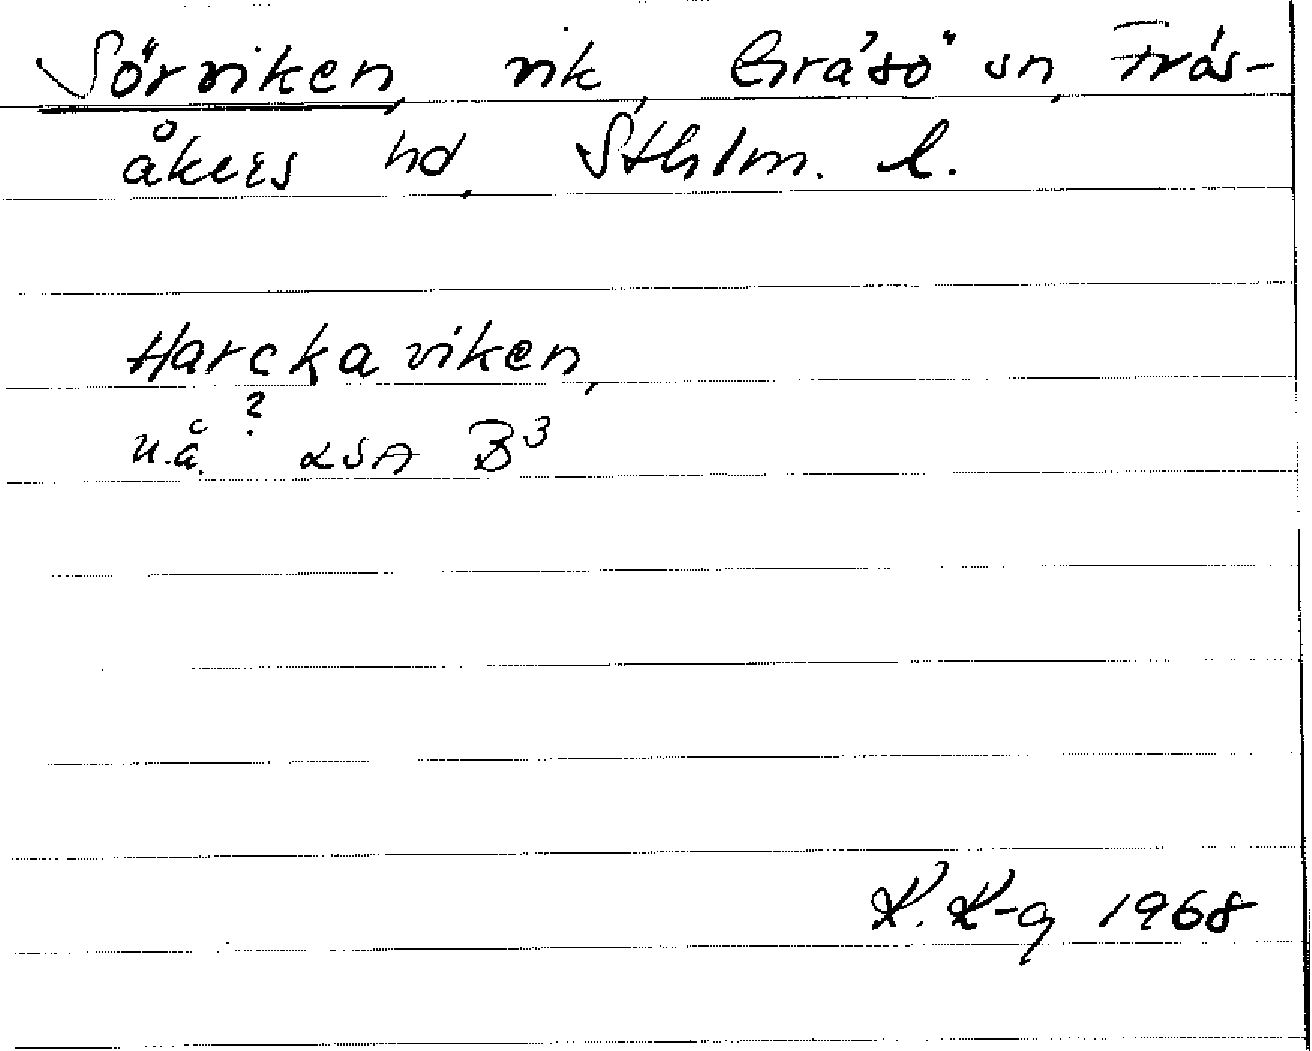 Sörviken, vik, Gräsö sn, Frös-
åkers hd, Sthlm. l.
Harckaviken,
?
u.å. LSA B3
K. K-g 1968